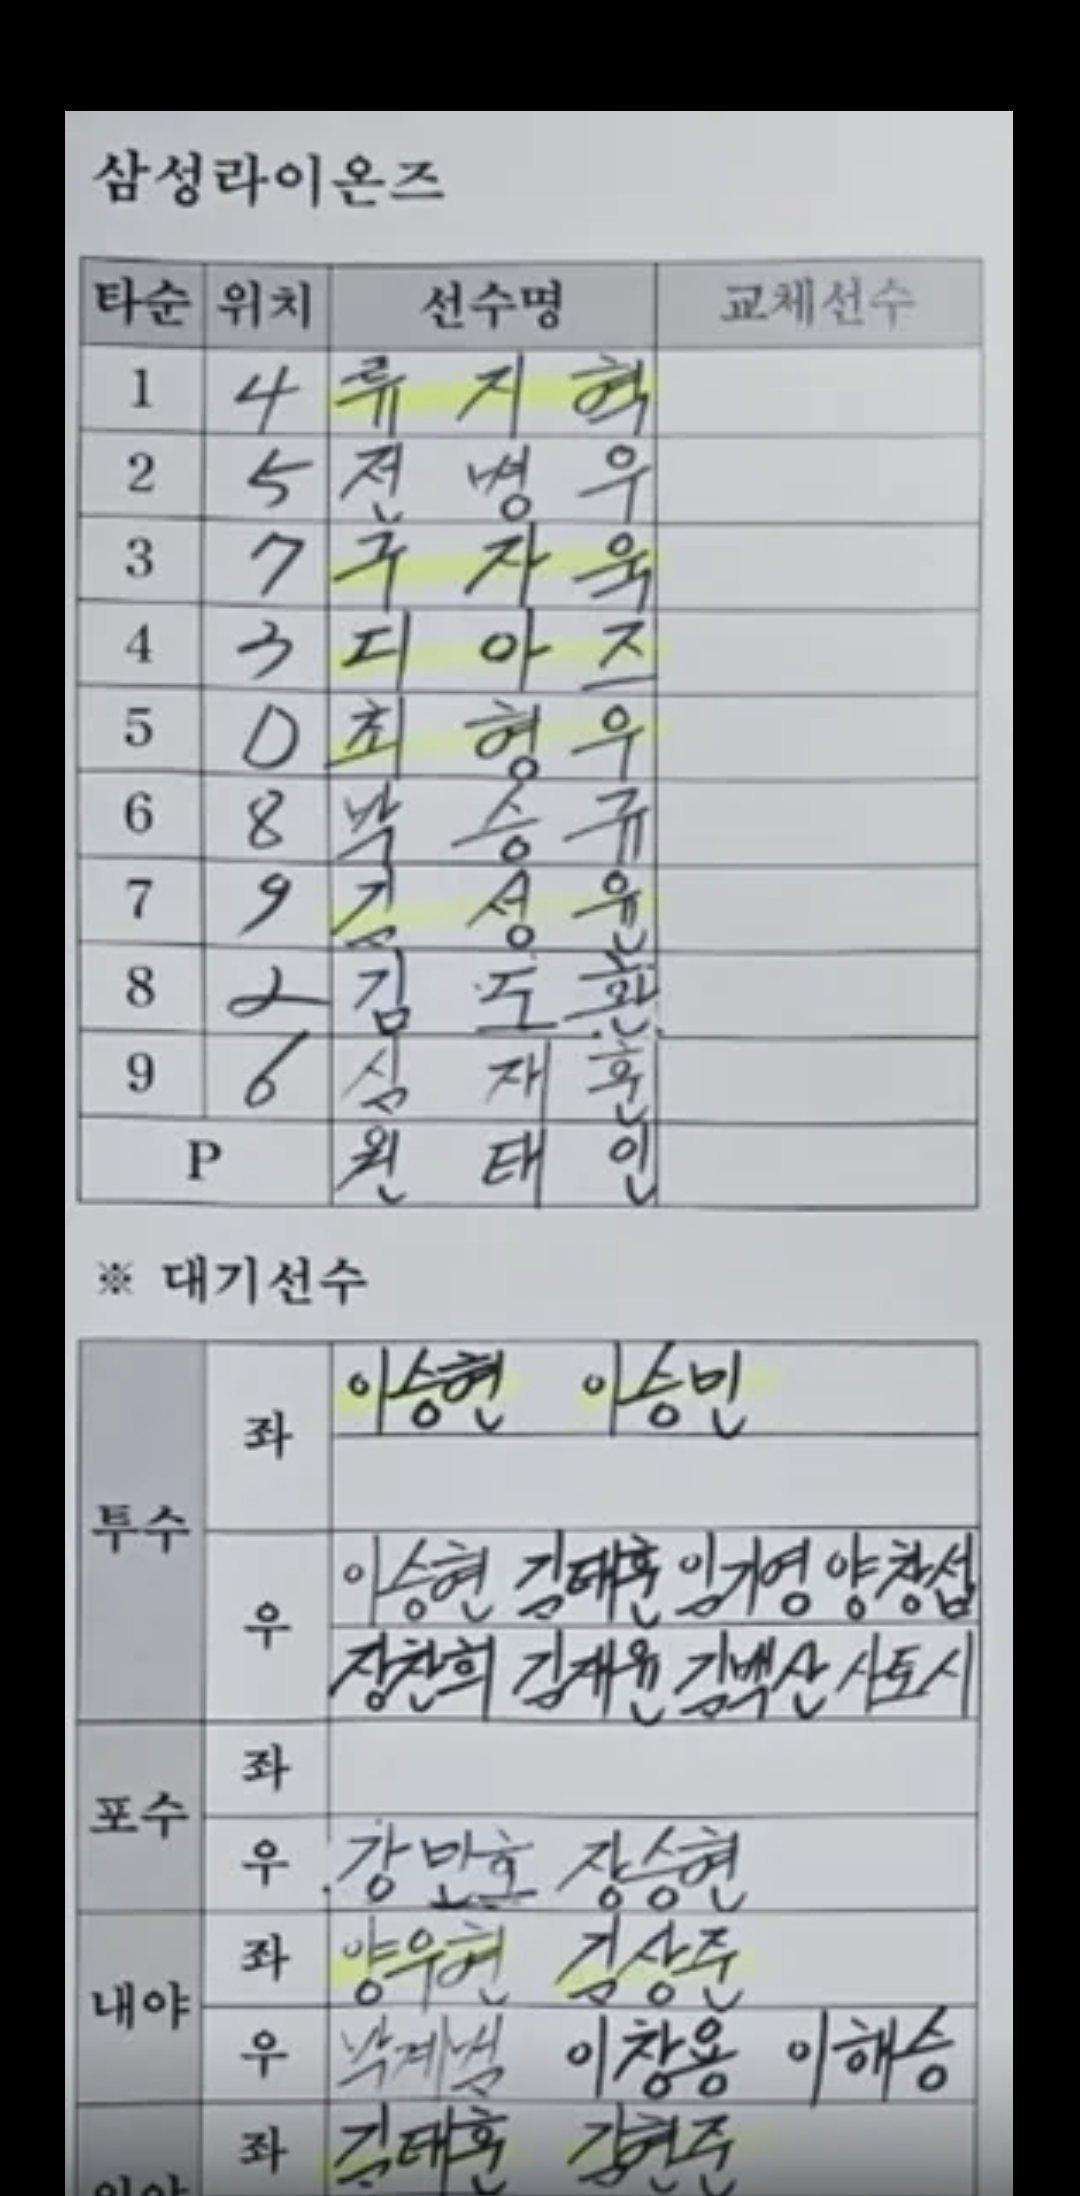 삼성라이온즈
타순 위치 선수명 교체선수
1 4 류지혁
2 5 전병우
3 7 구자욱
4 3 디아즈
5 D 최형우
6 8 박승규
7 9 김성윤
8 2 김도환
9 6 심재훈
P 원태인
※ 대기선수
투수 좌 이승현 이승민
우 이승현 김태훈 임기영 양창섭
장찬희 김재윤 김백산 사토시
포수 좌
우 강민호 장승현
내야 좌 양우현 김상준
우 박계범 이창용 이해승
좌 김태훈 김현준